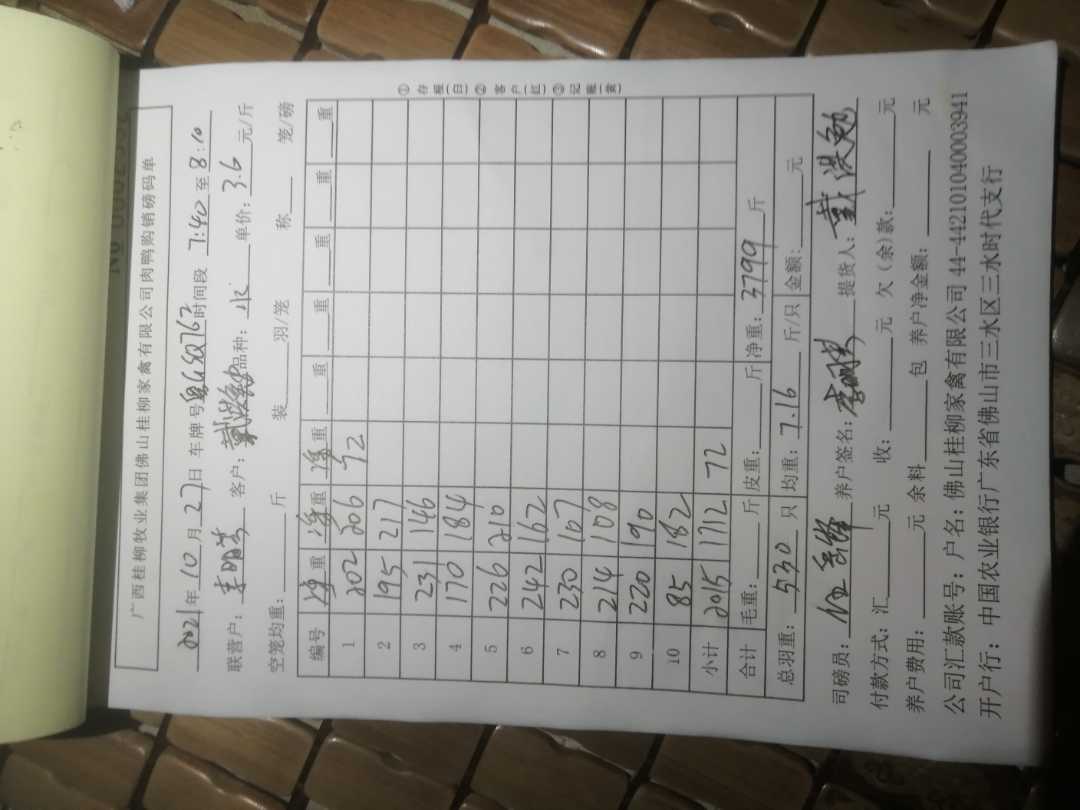 No 0002552
广西桂柳牧业集团佛山桂柳家禽有限公司肉鸭购销磅码单
2021年10月27日 车牌号 时间段 7:40 至 8:10
联营户: 李明 客户: 戴洪勉 品种: 水 单价: 3.6 元/斤
空笼均重: 斤 装 羽/笼 称 笼/磅
编号 净重 净重 净重 重 重 重 重 重
1 202 206 72
2 195 217
3 231 146
4 170 184
5 226 210
6 242 162
7 230 107
8 214 108
9 220 190
10 85 182
小计 2015 1712 72
合计 毛重: 斤 皮重: 斤 净重: 3799 斤
总羽重: 530 只 均重: 7.16 斤/只 金额: 元
①存根(白)②客户(红)③记账(黄)
司磅员: 养户签名: 提货人: 戴洪勉
付款方式: 汇 元 收: 元 欠(余)款: 元
养户费用: 元 余料 包 养户净金额: 元
公司汇款账号: 户名: 佛山桂柳家禽有限公司 44-442101040003941
开户行: 中国农业银行广东省佛山市三水区三水时代支行